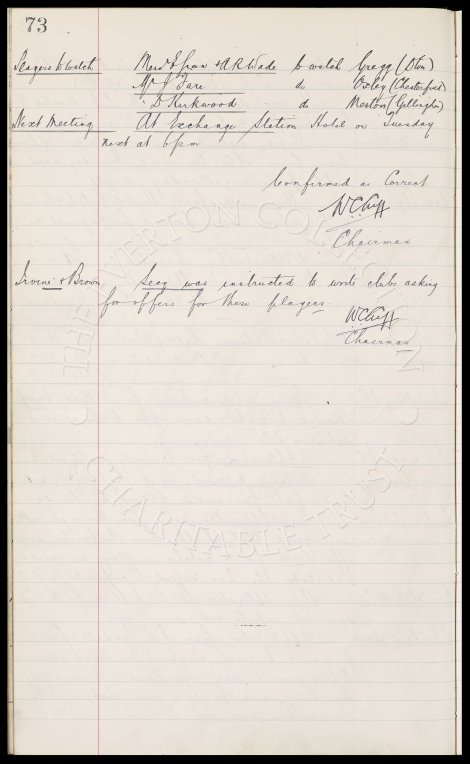 73
Players to Watch Messrs E Green & A.R. Wade to watch Gregg (Oton)
Mr J Fare do Oxley (Chesterfield)
" D Kirkwood do Weston (Gillingham)
Next Meeting At Exchange Station Hotel on Tuesday
next at 6pm
Confirmed as Correct
W.C. Cuff
Chairman
Irvine & Brown Secy was instructed to write clubs asking
for offers for these players.
W.C. Cuff
Chairman
THE EVERTON COLLECTION
CHARITABLE TRUST